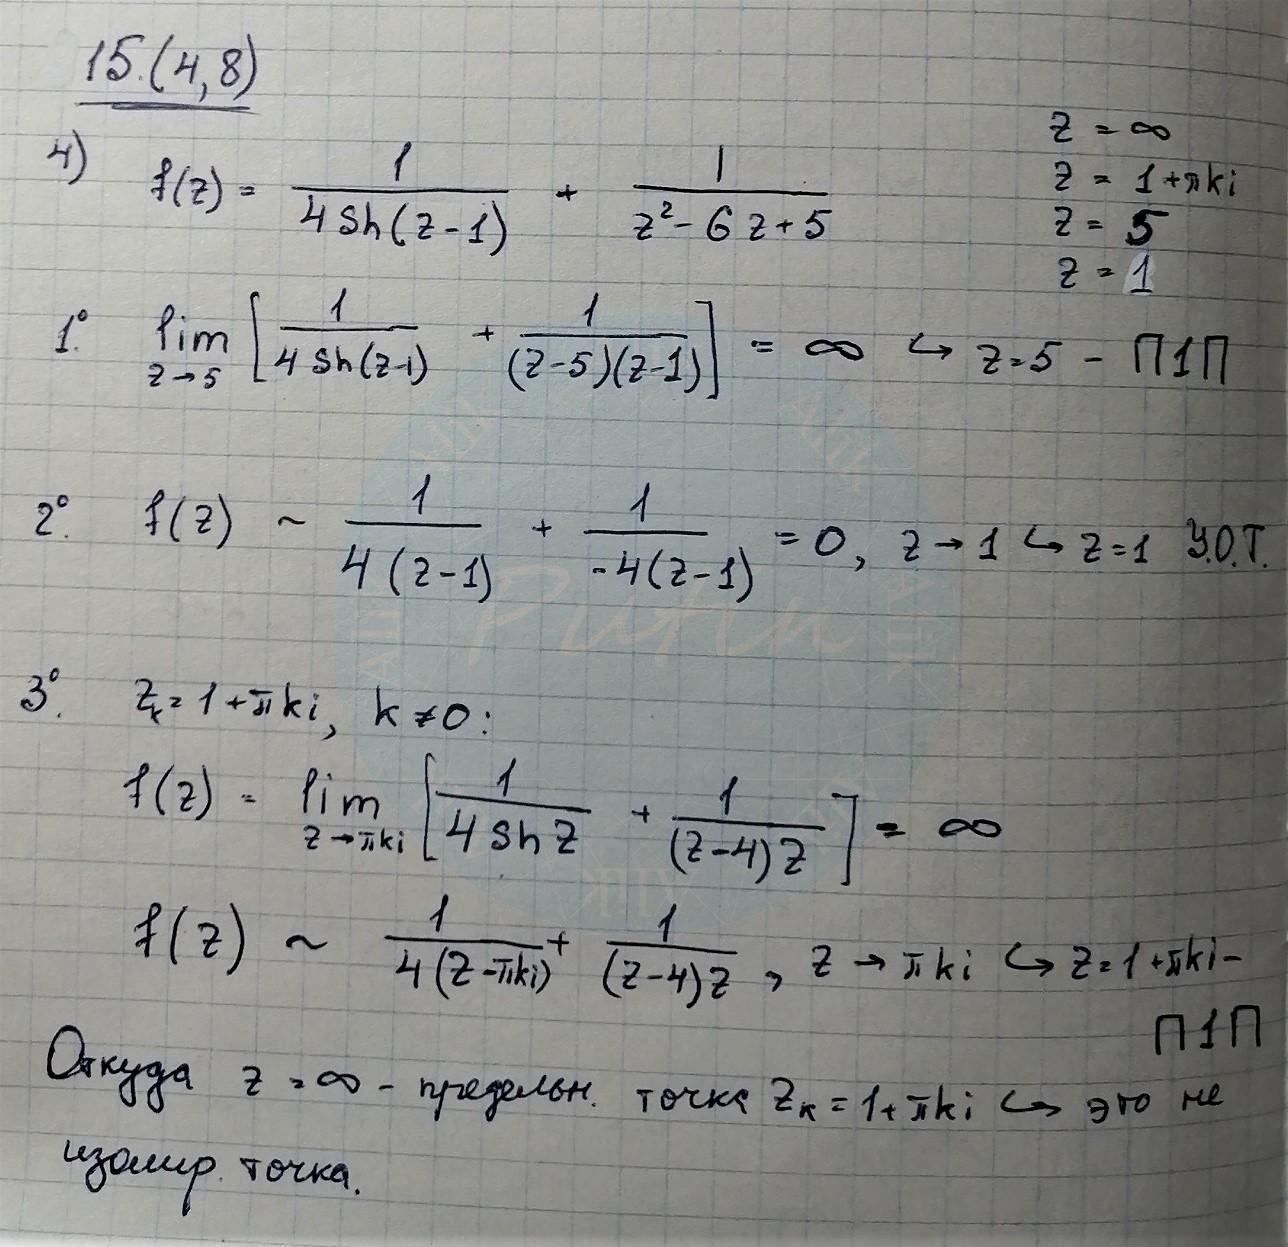 15.(4,8)
4) f(z) = 1/(4 sh(z-1)) + 1/(z² - 6z + 5)
z = ∞
z = 1 + πki
z = 5
z = 1
1°. lim z→5 [1/(4 sh(z-1)) + 1/((z-5)(z-1))] = ∞ ↪ z=5 - П1П
2°. f(z) ~ 1/(4(z-1)) + 1/(-4(z-1)) = 0, z → 1 ↪ z=1 У.О.Т.
3°. zₖ = 1 + πki, k ≠ 0:
f(z) = lim z→πki [1/(4 sh z) + 1/((z-4)z)] = ∞
f(z) ~ 1/(4(z-πki)) + 1/((z-4)z), z → πki ↪ z = 1+πki -
П1П
Откуда z = ∞ - предельн. точка zₖ = 1 + πki ↪ это не
изолир. точка.
Alik
Alik
Putin
Alik